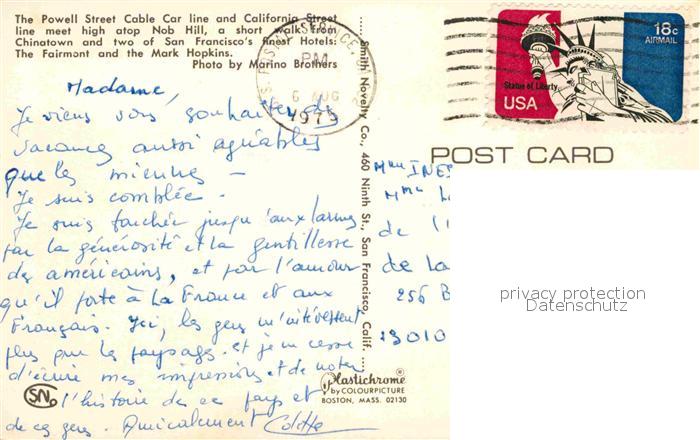 The Powell Street Cable Car line and California Street
line meet high atop Nob Hill, a short walk from
Chinatown and two of San Francisco's finest Hotels:
The Fairmont and the Mark Hopkins.
Photo by Marino Brothers
Madame,
Je viens vous souhaiter des
vacances aussi agréables
que les miennes -
Je suis comblée.
Je suis touchée jusqu'aux larmes
par la générosité et la gentillesse
des américains, et par l'amour
qu'il porte à la France et aux
Français. Ici, les gens m'intéressent
plus que les paysages. et je ne cesse
d'écrire mes impressions et de noter
l'histoire de ce pays et
de ces gens. Amicalement Colette
SN
Smith Novelty Co., 460 Ninth St., San Francisco, Calif.
Plastichrome®
by COLOURPICTURE
BOSTON, MASS. 02130
PM
6 AUG
1975
18c
AIRMAIL
Statue of Liberty
USA
POST CARD
de
de La
256 B
13010
privacy protection
Datenschutz